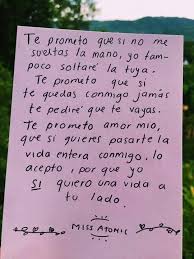 Te prometo que si no me
sueltas la mano, yo tam-
poco soltaré la tuya.
Te prometo que si
te quedas conmigo jamás
te pediré que te vayas.
Te prometo amor mío,
que si quieres pasarte la
vida entera conmigo, lo
acepto, por que yo
SI quiero una vida a
tu lado.
MISS ATOMIC